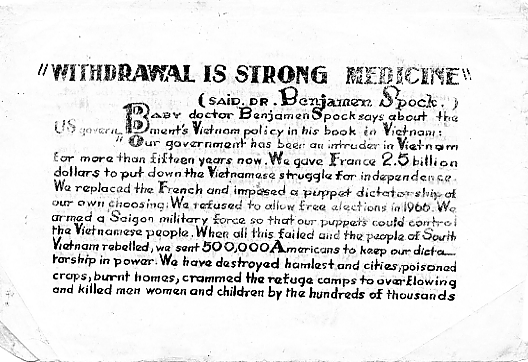 "WITHDRAWAL IS STRONG MEDICINE"
(SAID. DR. Benjamen Spock.)
BABY doctor Benjamen Spock says about the
US government's Vietnam policy in his book in Vietnam:
"Our government has been an intruder in Vietnam
for more than fifteen years now. We gave France 2.5 billion
dollars to put down the Vietnamese struggle for independence.
We replaced the French and imposed a puppet dictatorship of
our own choosing. We refused to allow free elections in 1966. We
armed a Saigon military force so that our puppets could control
the Vietnamese people. When all this failed and the people of South
Vietnam rebelled, we sent 500,000 Americans to keep our dicta-
torship in power. We have destroyed hamlest and cities, poisoned
crops, burnt homes, crammed the refuge camps to overflowing
and killed men women and children by the hundreds of thousands